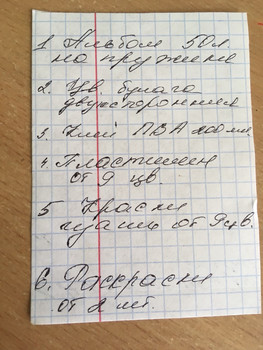 1 Альбом 50л.
на пружине
2. Цв. бумага
двухсторонняя
3. Клей ПВА 200 мл.
4. Пластилин
от 9 цв.
5 Краски
гуашь от 9цв.
6. Раскраски
от 2 шт.